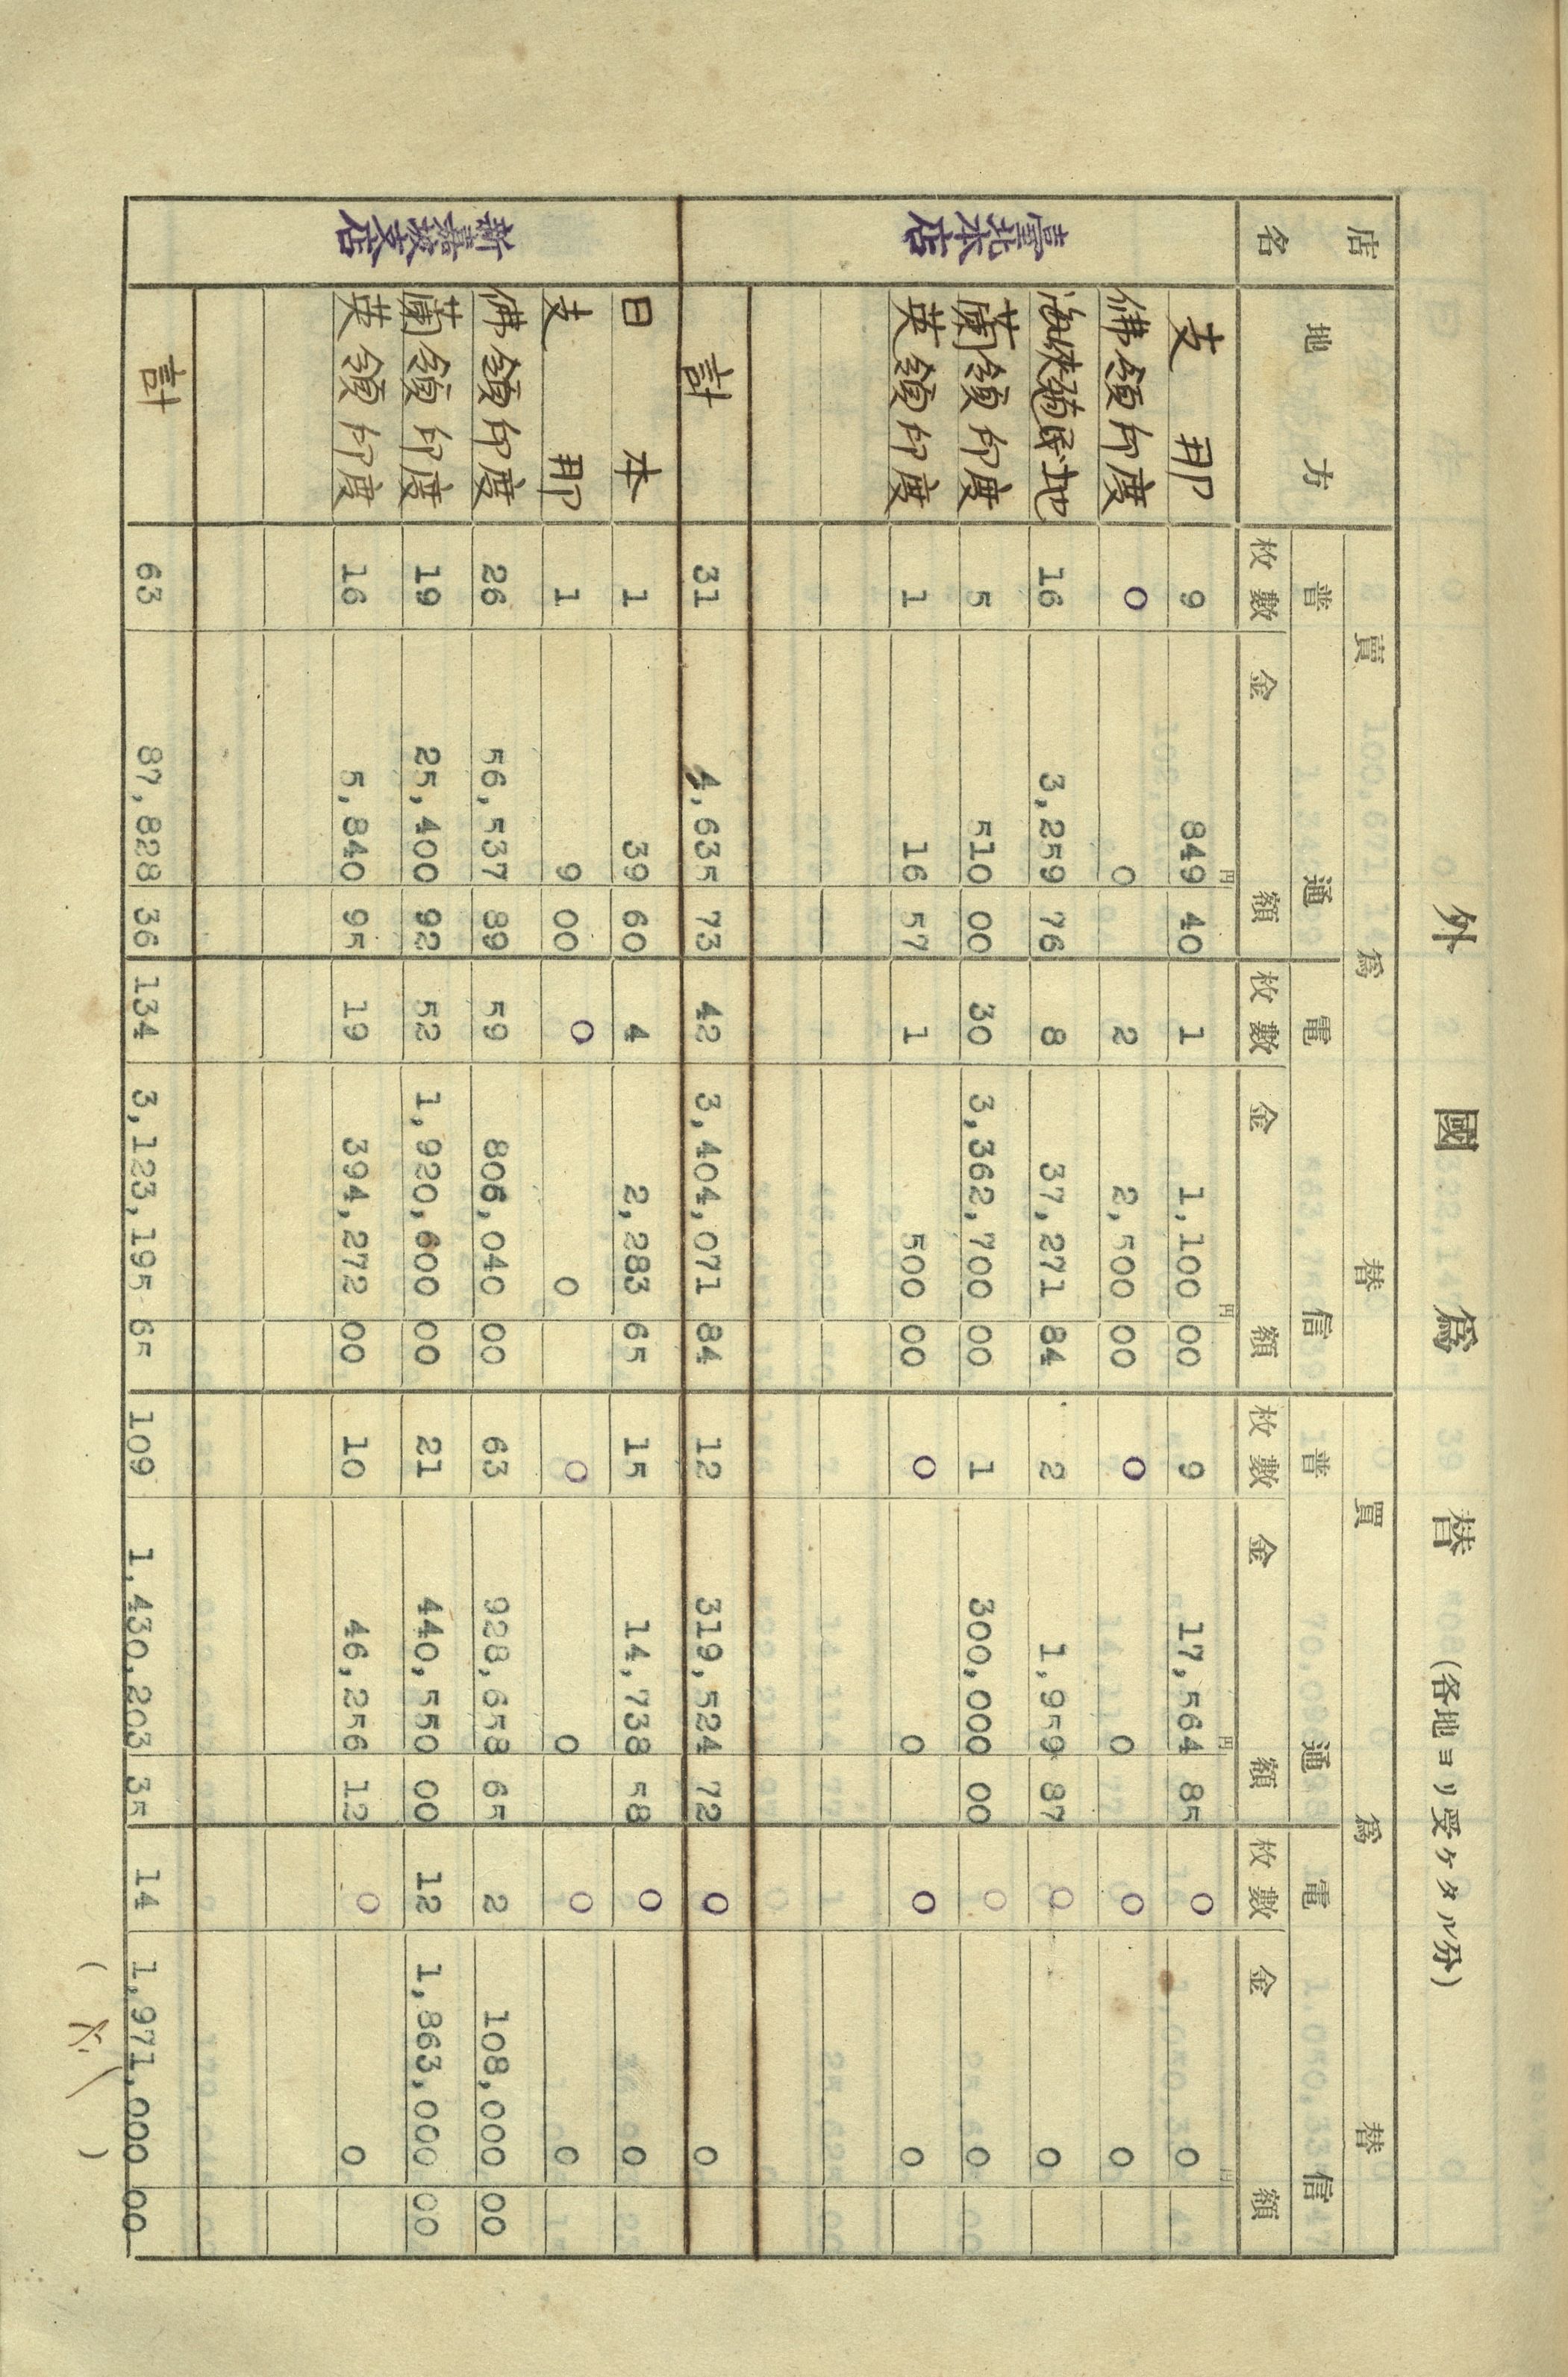 外國爲替 (各地ヨリ受ケタル分)
店名 地方 賣爲替 買爲替
普通 電信 普通 電信
枚數 金額 枚數 金額 枚數 金額 枚數 金額
円 円 円 円
臺北本店
支那 9 849 40 1 1,100 00 9 17,564 85 0 0
佛領印度 0 0 2 2,500 00 0 0 0 0
海峽殖民地 16 3,259 76 8 37,271 84 2 1,959 87 0 0
蘭領印度 5 510 00 30 3,362,700 00 1 300,000 00 0 0
英領印度 1 16 57 1 500 00 0 0 0 0
計 31 4,635 73 42 3,404,071 84 12 319,524 72 0 0
新嘉坡支店
日本 1 39 60 4 2,283 65 15 14,738 58 0 0
支那 1 9 00 0 0 0 0 0 0
佛領印度 26 56,537 89 59 806,040 00 63 928,658 65 2 108,000 00
蘭領印度 19 25,400 92 52 1,920,600 00 21 440,550 00 12 1,863,000 00
英領印度 16 5,840 95 19 394,272 00 10 46,256 12 0 0
計 63 87,828 36 134 3,123,195 65 109 1,430,203 35 14 1,971,000 00